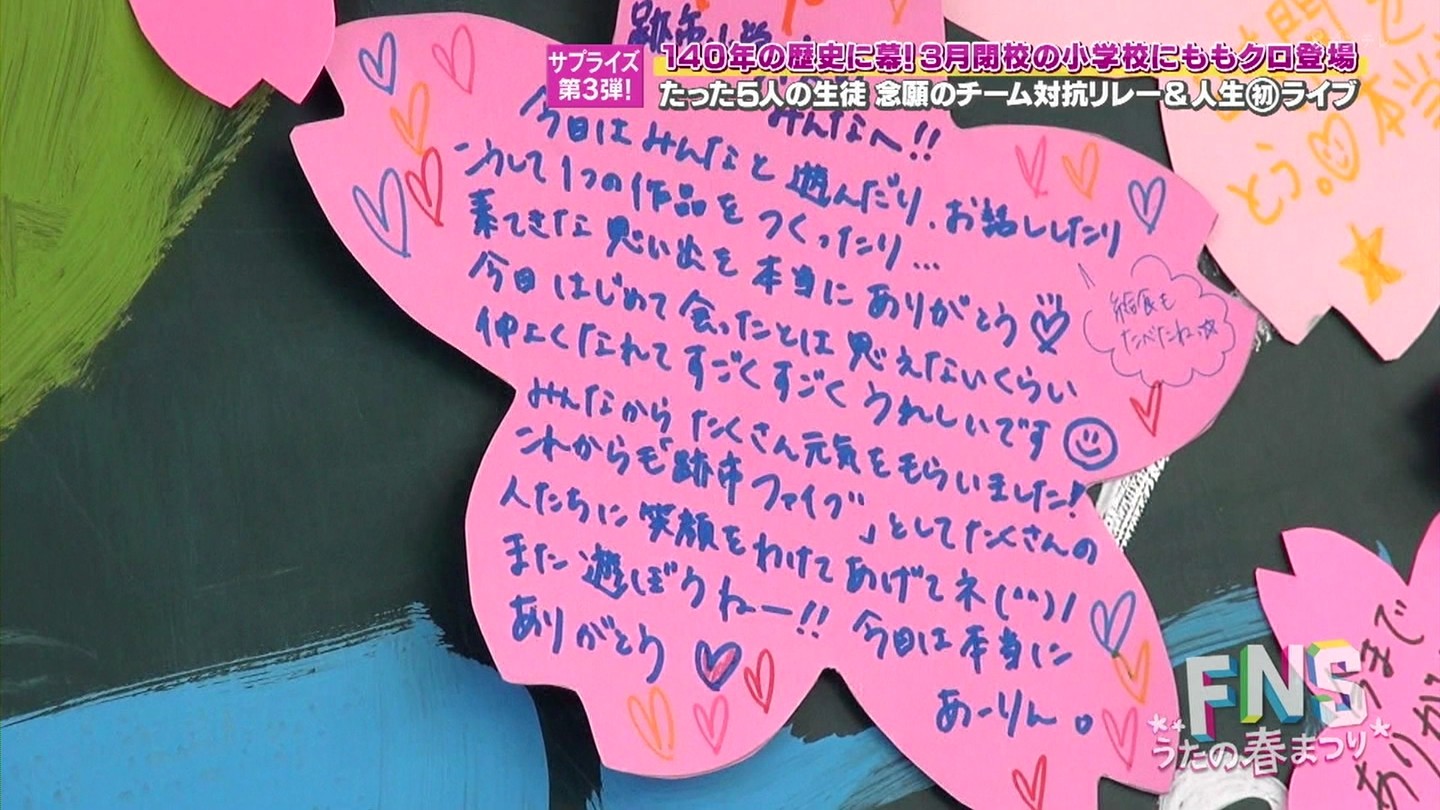 サプライズ
第3弾!
140年の歴史に幕!3月閉校の小学校にももクロ登場
たった5人の生徒 念願のチーム対抗リレー&人生㊤ライブ
みんなへ!!
今日はみんなと遊んだり、お話ししたり
こうして1つの作品をつくったり…
素てきな思い出を本当にありがとう♡
給食も
たべたねっ☆
今日はじめて会ったとは思えないくらい
仲よくなれてすごくすごくうれしいです
みんなからたくさん元気をもらいました!
これからも「跡市ファイブ」としてたくさんの
人たちに笑顔をわけてあげてネ(^^)/
また遊ぼうねー!! 今日は本当に
ありがとう
あーりん。
とう。
本当
まで
ありが
FNS
うたの春まつり